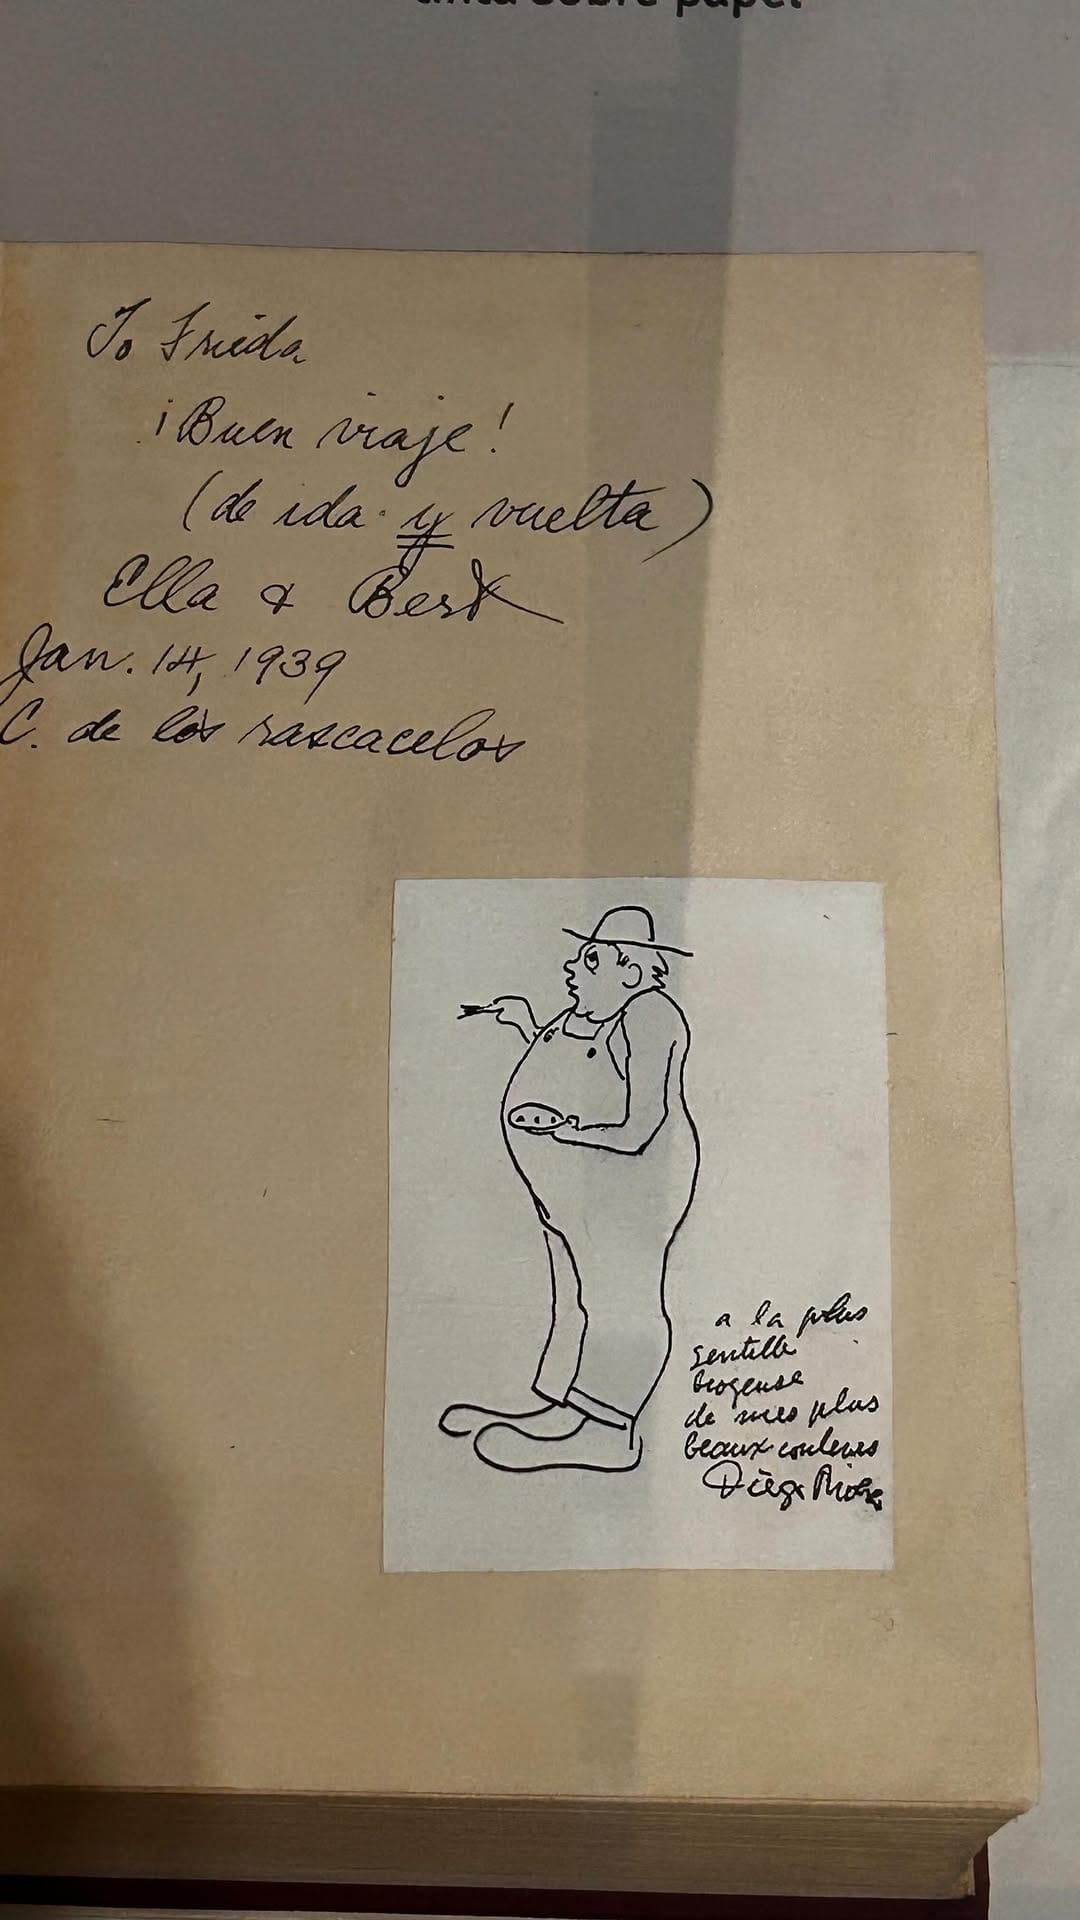 tinta sobre papel
To Frieda
¡Buen viaje!
(de ida y vuelta)
Ella & Bert
Jan. 14, 1939
C. de los rascacelos
a la plus
gentille
broyeuse
de mes plus
beaux couleurs
Diego Rivera